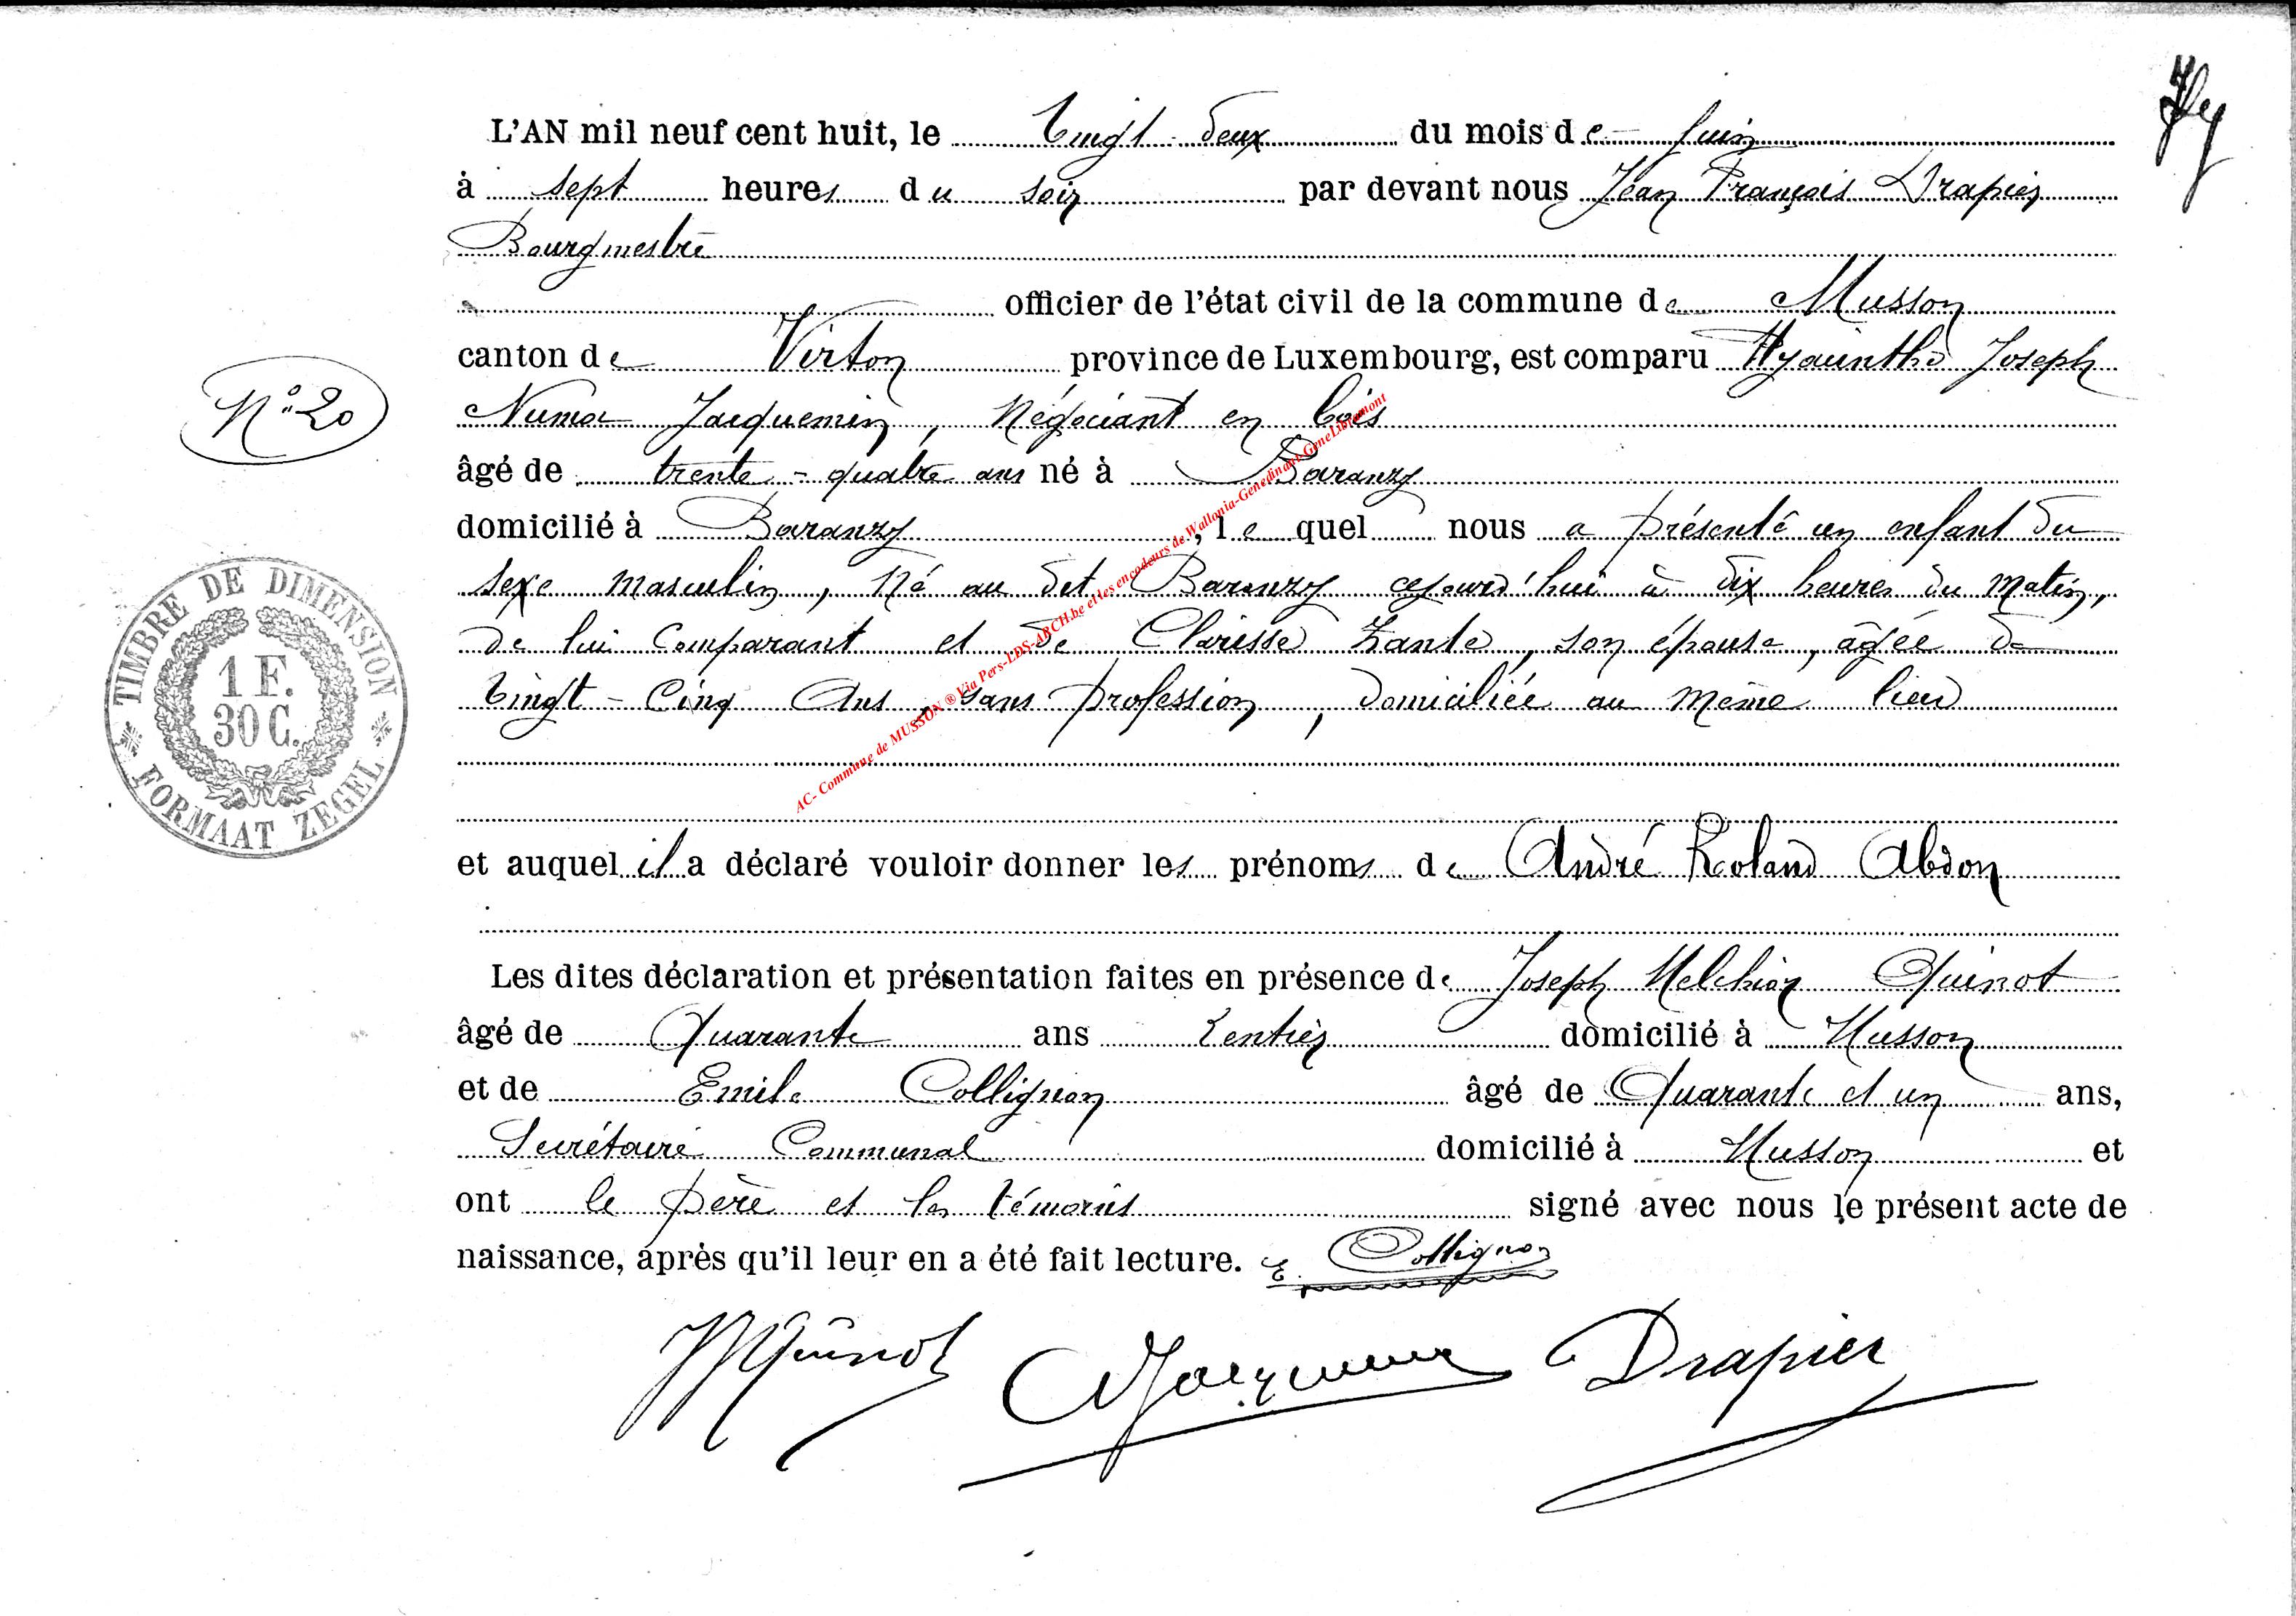 L'AN mil neuf cent huit, le vingt-deux du mois de juin
à sept heures du soir par devant nous Jean François Drapier
Bourgmestre
officier de l'état civil de la commune de Musson
canton de Virton province de Luxembourg, est comparu Hyacinthe Joseph
Numa Jacquemin, Négociant en bois
âgé de trente-quatre ans né à Baranzy
domicilié à Baranzy, lequel nous a présenté un enfant du
sexe masculin, né au dit Baranzy cejourd'hui à dix heures du matin,
de lui comparant et de Clarisse Zante, son épouse, âgée de
vingt-cinq ans, sans profession, domiciliée au même lieu
et auquel il a déclaré vouloir donner les prénoms de André Roland Abdon
Les dites déclaration et présentation faites en présence de Joseph Melchior Quinot
âgé de Quarante ans Rentier domicilié à Musson
et de Emile Collignon âgé de Quarante et un ans,
Secrétaire Communal domicilié à Musson et
ont le père et les témoins signé avec nous le présent acte de
naissance, après qu'il leur en a été fait lecture. E. Collignon
JMQuinot Jacquemin Drapier
N° 20
TIMBRE DE DIMENSION
1 F.
30 C.
FORMAAT ZEGEL
AC- Commune de MUSSON ® Via Pers-LDS-ARCH.be et les encodeurs de Wallonia-Genedinant-GeneLibramont